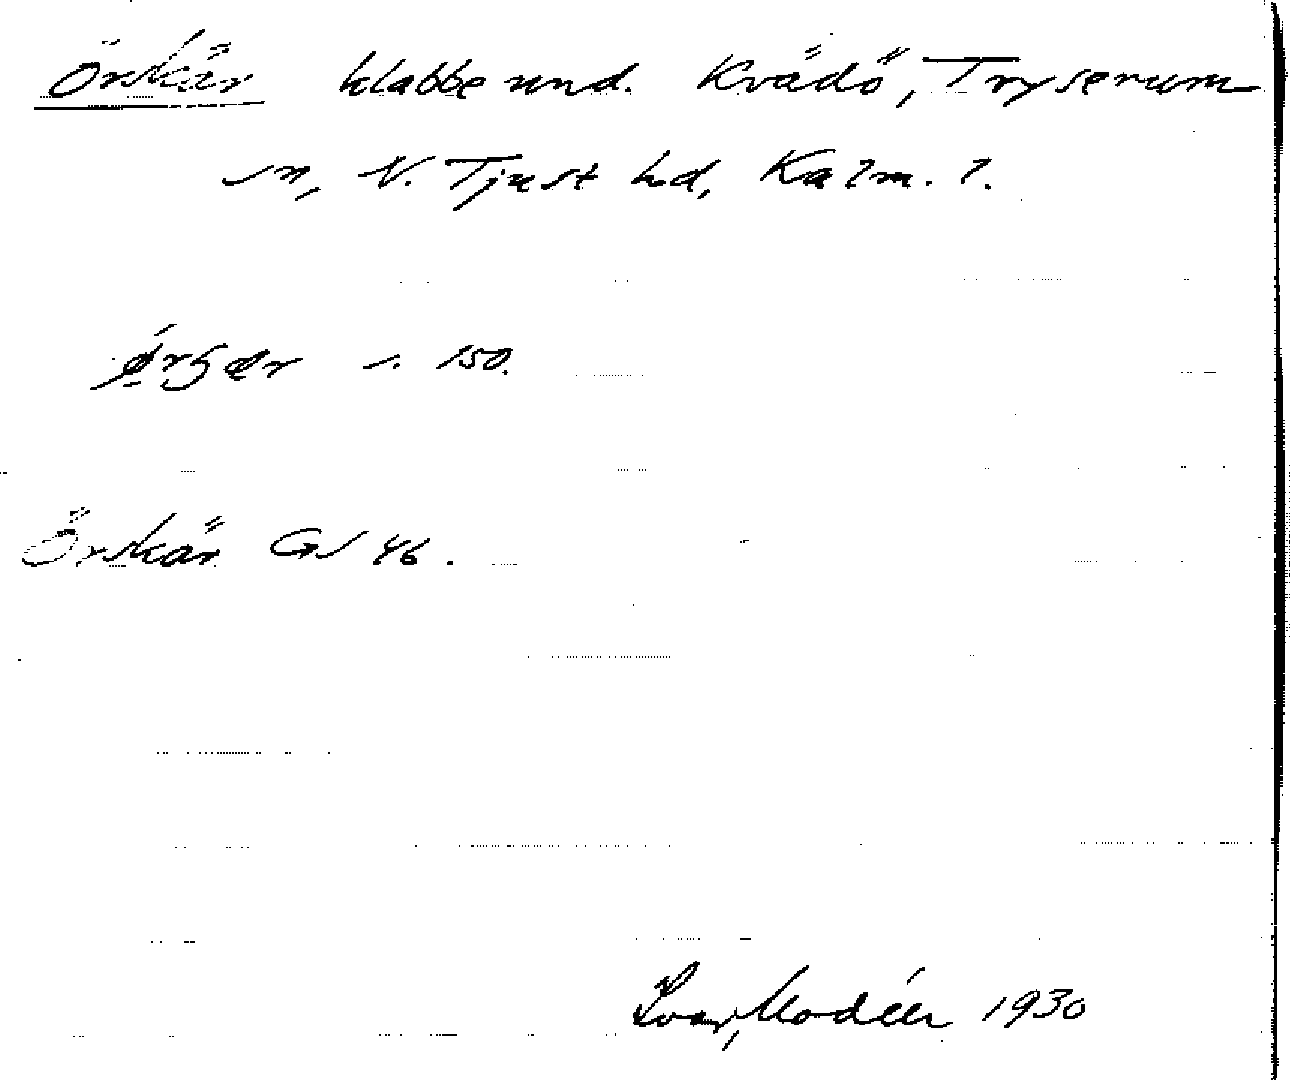 Örskär klabbe und. Kvädö, Tryserum
sn, N. Tjust hd, Kalm. l.
s. 150.
Örskär GS 46.
Ivar Modéer 1930